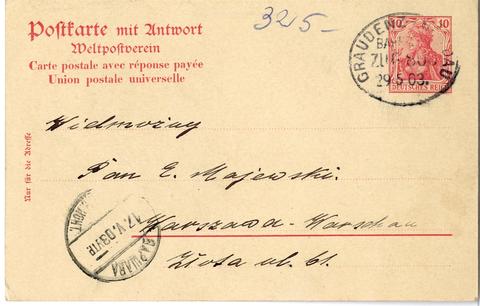 Postkarte mit Antwort
Weltpostverein
Carte postale avec réponse payée
Union postale universelle
325-
10
DEUTSCHES REICH
GRAUDENZ
ZUG 803
29.5.03.
Nur für die Adresse
Wielmożny
Pan E. Majewski.
Warszawa-Warschau
Złota ul. 61.
17.V.03
ВАРШАВА